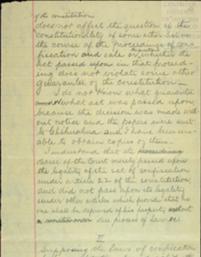 of the constitution
does not affect the question of the
constitutionality of some other law
the course of the proceedings of con-
fiscation and sale or whether the
act passed upon in that proceed-
ing does not violate some other
guarantee of the constitution.
I do not know what guarantee
what act was passed upon
because the decision was made with-
out notice and the papers sent
to Chihuahua and I have been una-
ble to obtain copies of them.
I understand that the
decree of the Court merely passed upon
the legality of the act of confiscation
under article 22 of the constitution
and did not pass upon its legality
under other articles which provide that no
one shall be deprived of his property without
due process of law etc.
II
Supposing the laws of confiscation